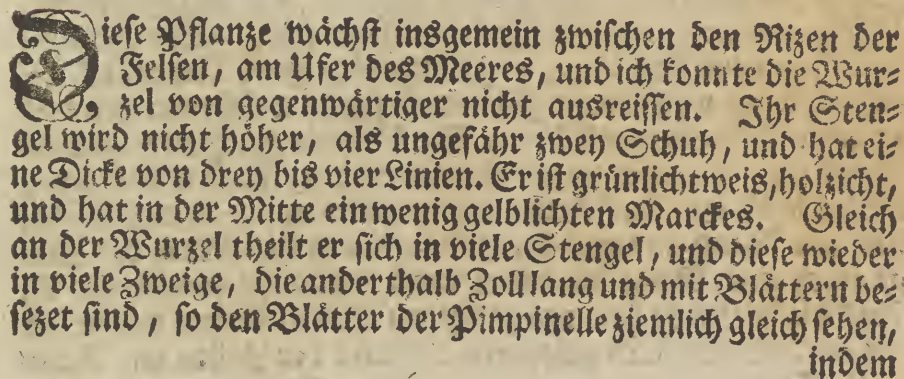 Diese Pflanze wächst insgemein zwischen den Rizen der
Felsen, am Ufer des Meeres, und ich konnte die Wur⸗
zel von gegenwärtiger nicht ausreissen. Ihr Sten⸗
gel wird nicht höher, als ungefähr zwey Schuh, und hat ei⸗
ne Dicke von drey bis vier Linien. Er ist grünlichtweis, holzicht,
und hat in der Mitte ein wenig gelblichten Marckes. Gleich
an der Wurzel theilt er sich in viele Stengel, und diese wieder
in viele Zweige, die anderthalb Zoll lang und mit Blättern be⸗
sezet sind, so den Blätter der Pimpinelle ziemlich gleich sehen,
indem